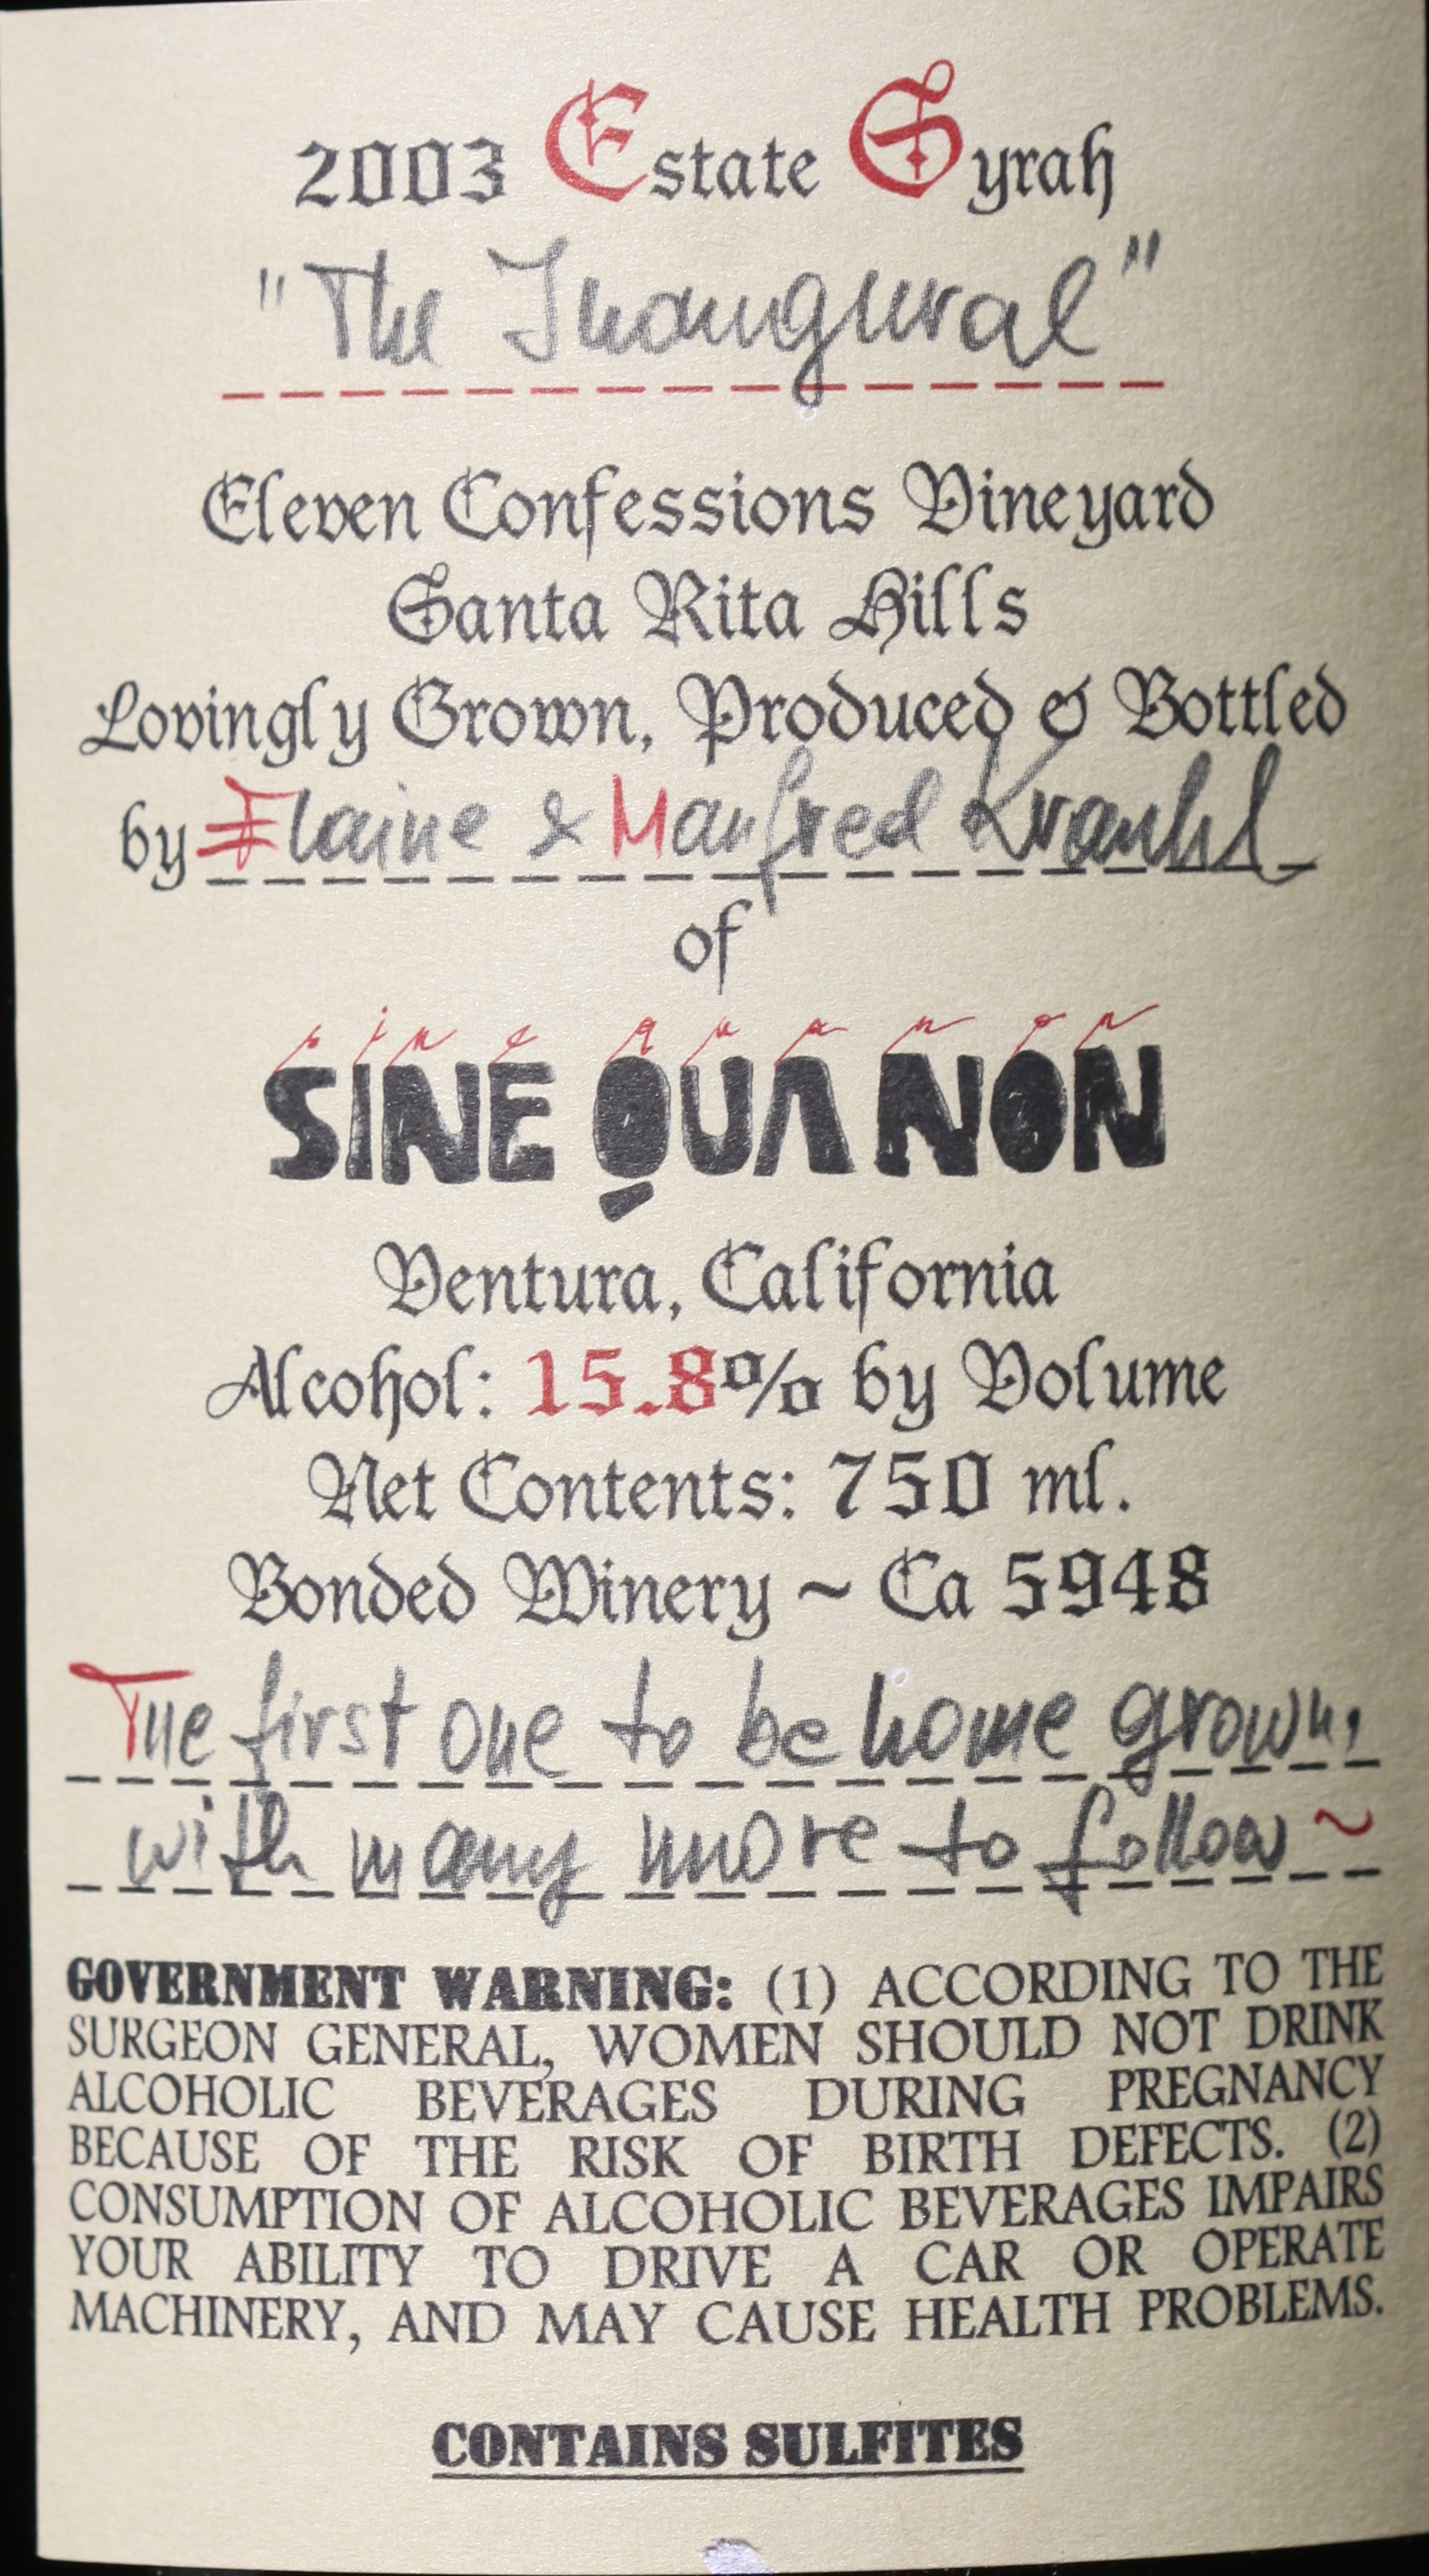 2003 Estate Syrah
"The Inaugural"
Eleven Confessions Vineyard
Santa Rita Hills
Lovingly Grown, Produced & Bottled
by Elaine & Manfred Krankl
of
sine qua non
SINE QUA NON
Ventura, California
Alcohol: 15.8% by Volume
Net Contents: 750 ml.
Bonded Winery ~ Ca 5948
The first one to be home grown,
with many more to follow ~
GOVERNMENT WARNING: (1) ACCORDING TO THE
SURGEON GENERAL, WOMEN SHOULD NOT DRINK
ALCOHOLIC BEVERAGES DURING PREGNANCY
BECAUSE OF THE RISK OF BIRTH DEFECTS. (2)
CONSUMPTION OF ALCOHOLIC BEVERAGES IMPAIRS
YOUR ABILITY TO DRIVE A CAR OR OPERATE
MACHINERY, AND MAY CAUSE HEALTH PROBLEMS.
CONTAINS SULFITES